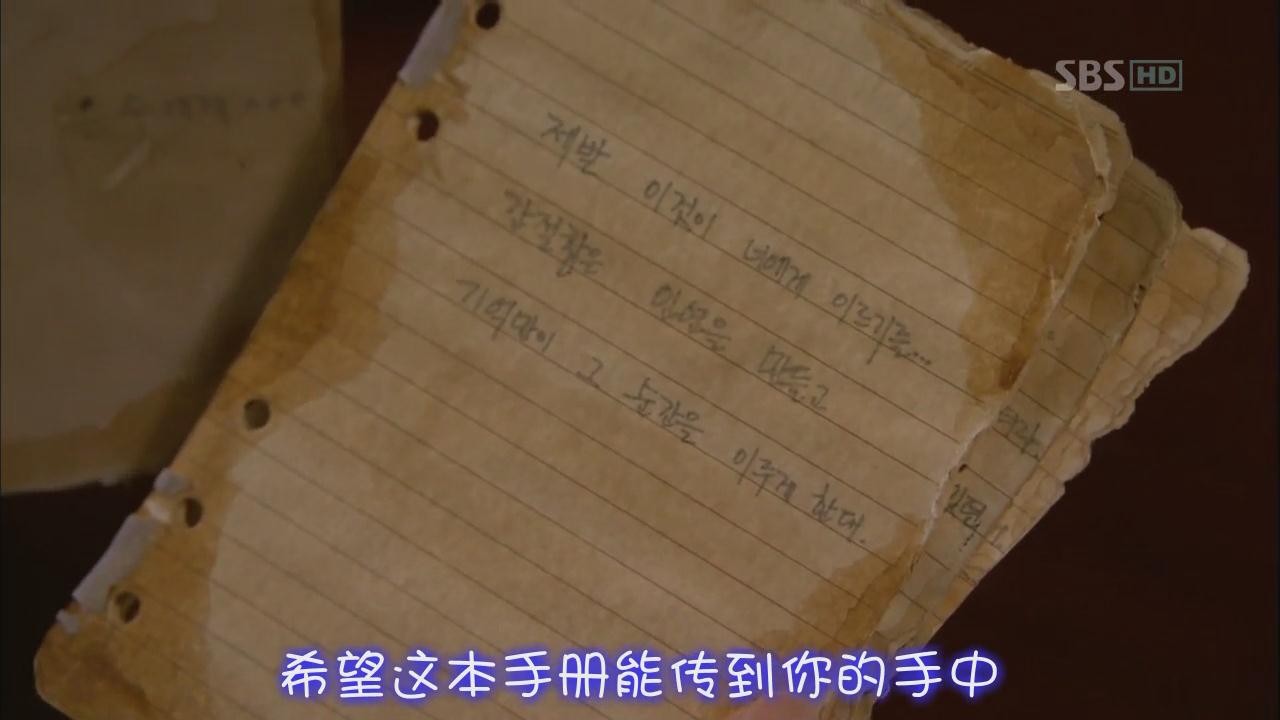 SBS HD
제발 이것이 너에게 이르기를...
간절함은 인연을 만들고
기억만이 그 순간을 이루게 한대.
希望这本手册能传到你的手中